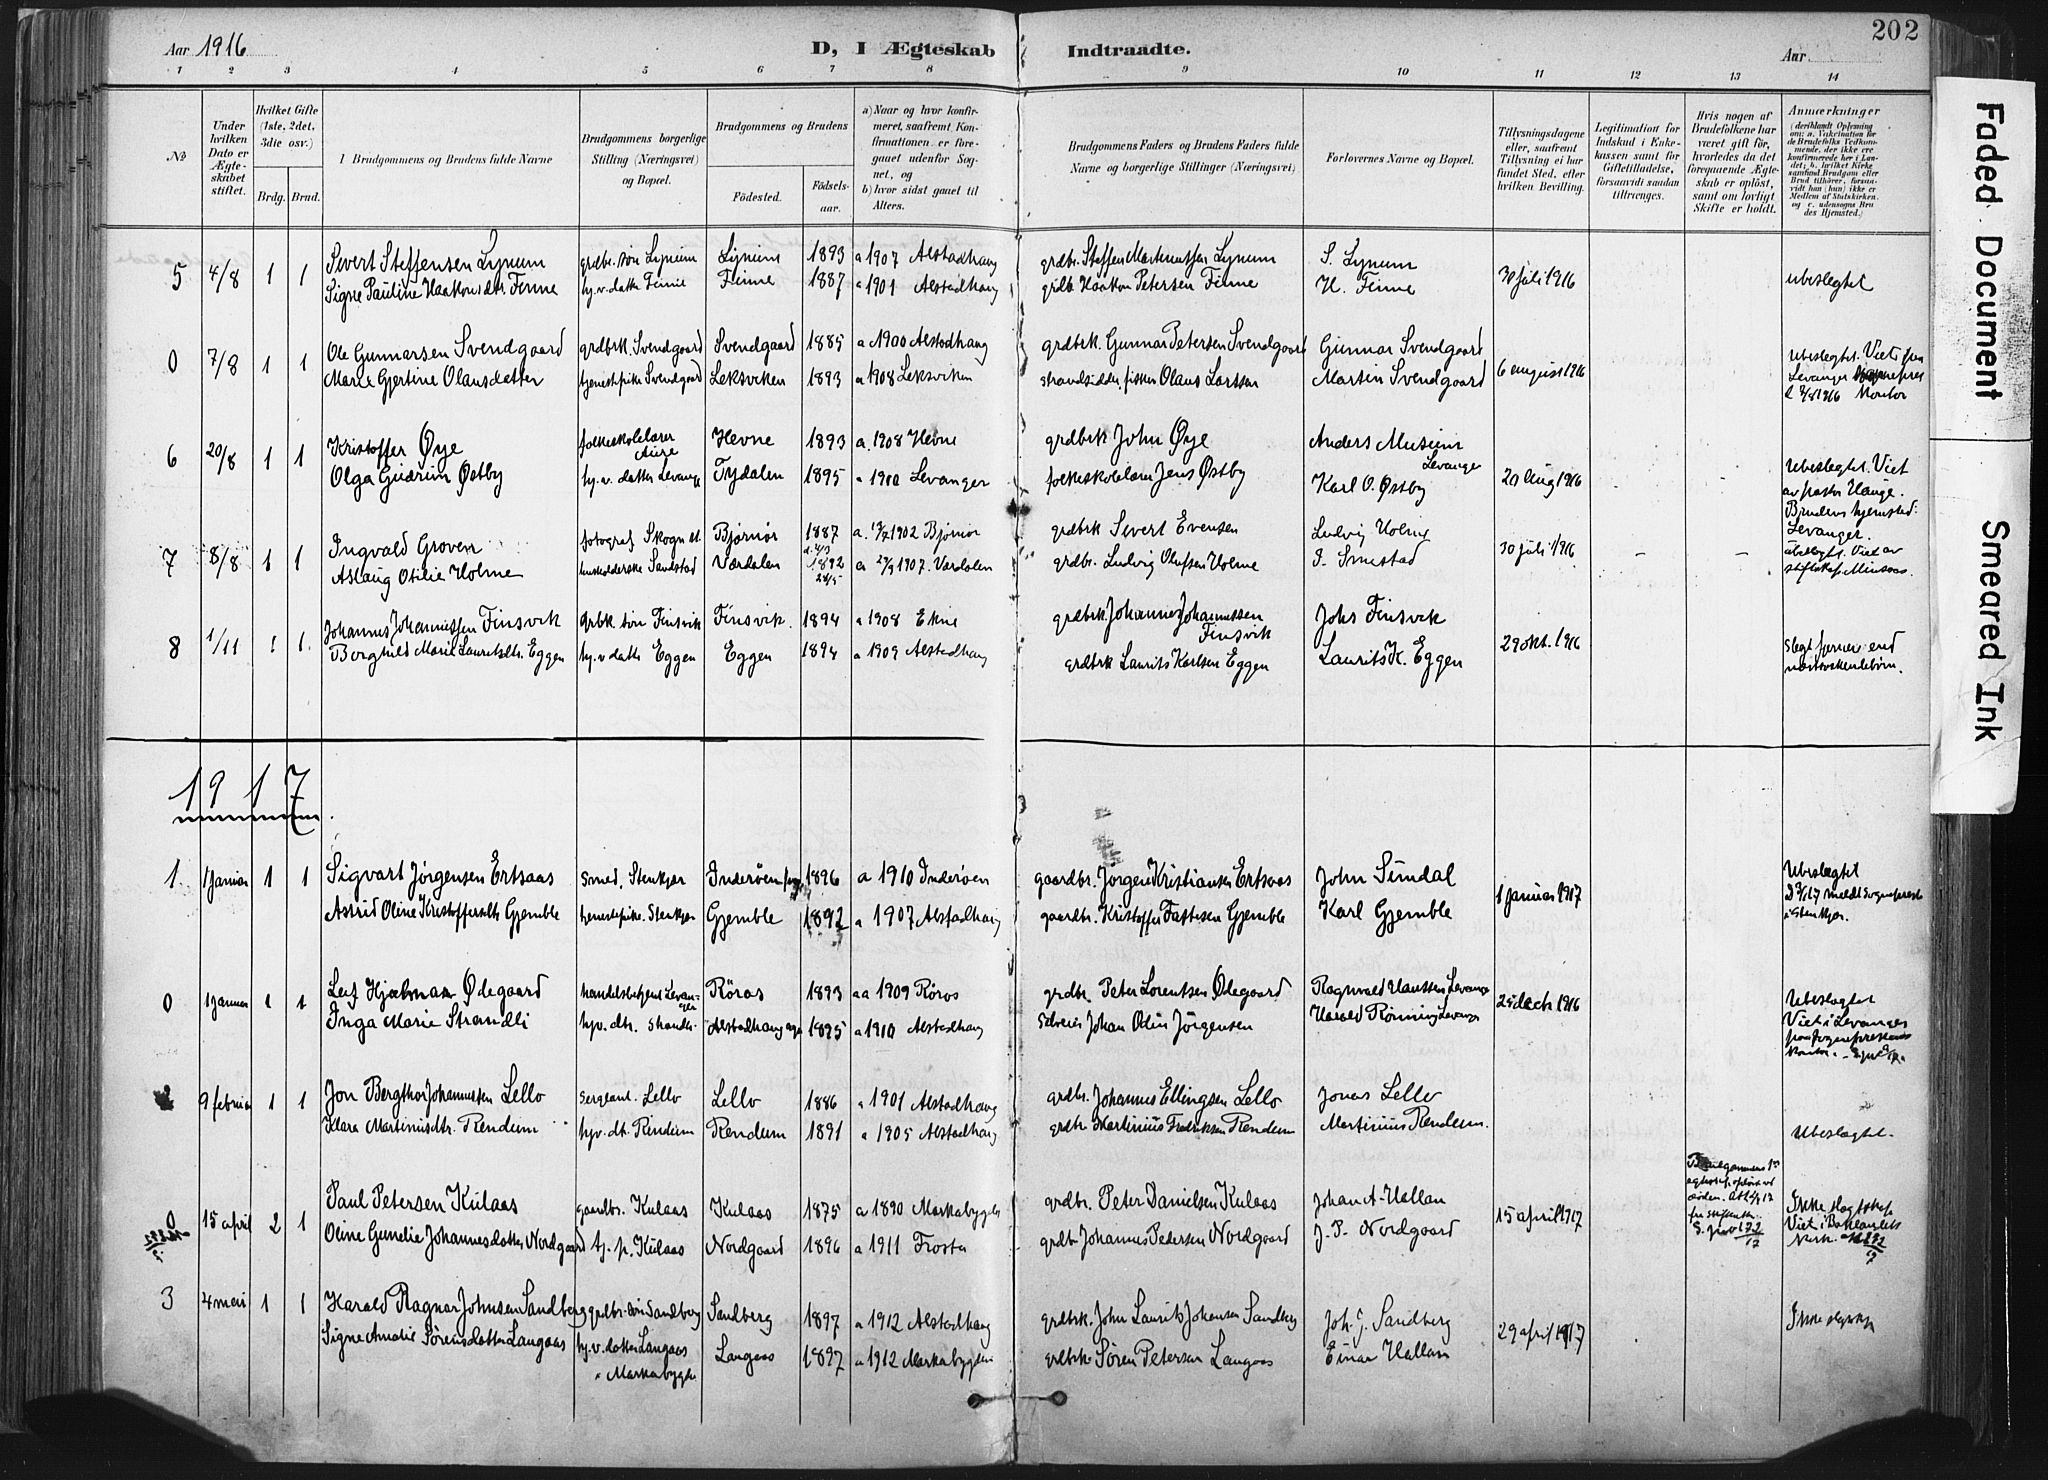 202
Aar 1916
D, I Ægteskab Indtraadte.
Aar
1 2 3 4 5 6 7 8 9 10 11 12 13 14
No
Under hvilken Dato er Ægteskabet stiftet.
Hvilket Gifte (1ste, 2det, 3die osv.)
Brdg. Brud.
1 Brudgommens og Brudens fulde Navne
Brudgommens borgerlige Stilling (Næringsvei) og Bopæl.
Brudgommens og Brudens
Fødested.
Fødselsaar.
a) Naar og hvor konfirmeret, saafremt Konfirmationen er foregaaet udenfor Sognet, og
b) hvor sidst gaaet til Alters.
Brudgommens Faders og Brudens Faders fulde Navne og borgerlige Stillinger (Næringsvei)
Forlovernes Navne og Bopæl.
Tillysningsdagene eller, saafremt Tillysning ei har fundet Sted, efter hvilken Bevilling.
Legitimation for Indskud i Enkekassen samt for Giftetilladelse, forsaavidt saadan tiltrænges.
Hvis nogen af Brudefolkene har været gift før, hvorledes da det foregaaende Ægteskab er opløst, samt om lovligt Skifte er holdt.
Anmærkninger
(deriblandt Oplysning om: a. Vakcination for de Brudefolks Vedkommende, der ikke ere konfirmerede her i Landet; b. hvilket Kirkesamfund Brudgom eller Brud tilhører, forsaavidt han (hun) ikke er Medlem af Statskirken, og c. udensogns Brudes Hjemsted.)
5 4/8 1 1 Sivert Steffensen Lynum grdbr. søn Lynum Lynum 1893 a 1907 Alstadhaug grdbr. Steffen Martinussen Lynum S. Lynum 30 juli 1916 ubeslegtet
Signe Pauline Haakonsdtr. Finne hj.v. datter Finne Finne 1887 a 1901 Alstadhaug grdb. Haakon Petersen Finne H. Finne
0 7/8 1 1 Ole Gunnarsen Svendgaard grdbrk. Svendgaard Svendgaard 1885 a 1900 Alstadhaug grdbrk. Gunnar Petersen Svendgaard Gunnar Svendgaard 6 august 1916 Ubeslegtet. Viet paa
Marie Gjertine Olausdatter tjenestpike Svendgaard Leksviken 1893 a 1908 Leksviken strandsidder, fisker Olaus Larssen Martin Svendgaard Levanger sogneprest
Kontor
6 20/8 1 1 Kristoffer Øye folkeskolelærer Aure Hevne 1893 a. 1908 Hevne grdbrk John Øye Anders Museum Levanger 20 aug 1916
Olga Gudrun Østby hj. v. datter Levanger Tydalen 1895 a 1910 Levanger folkeskolelærer Jens Østby Karl O. Østby
Ubeslegtet. Viet
av pastor Hauge.
Brudens hjemsted:
Levanger.
7 8/8 1 1 Ingvald Groven fotograf Skogn st. Bjørnør 1887 a. 13/7 1902 Bjørnør grdbrk Sivert Evensen Ludvig Holme 30 juli 1916 - - ubeslegt. Viet av
Aslaug Otilie Holme husholderske Sandstad Værdalen 1892 28/5 a 29/9 1907. Værdalen grdbr. Ludvig Olufsen Holme I. Smestad stiftskap. Minsaas.
8 1/11 1 1 Johannes Johannessen Finsvik grbk. søn Finsvik Finsvik. 1894 a 1908 Ekne grdbrk. Johannes Johannessen Finsvik Johs Finsvik 29 okt. 1916 slegt fjernere end
Borghild Marie Lauritsdtr. Eggen hj. v datter Eggen Eggen 1894 a 1909 Alstadhaug grdbrk Laurits Karlsen Eggen Laurits K. Eggen næstsøskendebørn.
1917
1 1 januar 1 1 Sigvart Jørgensen Ertsaas Smed, Stenkjær Inderøen 1896 a 1910 Inderøen gaardbr. Jørgen Kristiansen Ertsaas John Sundal 1 januar 1917 Ubeslegtet
Astrid Oline Kristoffersdtr Gjemble tjenestepike. Stenkjær Gjemble 1892 a 1907 Alstadhaug gaardbr. Kristoffer Tostesen Gjemble Karl Gjemble
i Stenkjær.
0 1 januar 1 1 Leif Hjalmar Ødegaard handelsbetjent Levanger Röros 1893 a 1909 Röros grdbr. Peter Lorentsen Ødegaard Ragnvald Hanssen Levanger 25 decb 1916 Ubeslegtet
Inga Marie Strandli hjv. dtr. Strandli Alstadhaug sogn 1895 a 1910 Alstadhaug Johan Odin Jörgensen Harald Rønning Levanger Viet i Levanger
2 9 februar 1 1 Jon Bergthor Johannessen Lello sergeant. Lello Lello 1886 a 1901 Alstadhaug grdbr. Johannes Ellingsen Lello Jonas Lello
Klara Martinusdtr. Rendum hjv. dt. Rendum Rendum 1891 a 1905 Alstadhaug grdbr. Martinius Fredriksen Rendum Martinius Rendum. Ubeslegtet.
0 15 april 2 1 Paul Petersen Kulaas gaardbr. Kulaas Kulaas 1875 a 1890 Markabygden grdbr. Peter Danielsen Kulaas Johan A. Hallan 15 april 1917
Oline Gunelie Johannesdatter Nordgaard tj. p. Kulaas Nordgaard 1896 a 1911 Frosta grdbr Johannes Petersen Nordgaard J. P. Nordgaard
Brudgommens 1ste
Ikke slegtskap
Viet i Baklandets
kirke.
3 4 mai 1 1 Harald Ragnar Johnsen Sandberg grdbr. søn Sandberg Sandberg 1897 a 1912 Alstadhaug grdbrk. John Laurits Johansen Sandberg Joh. J. Sandberg 29 april 1917 Ikke slegtskap
Signe Amalie Sørensdatter Langaas hj. v. datter Langaas Markabygden Langaas 1897 a 1912 Markabygden grdbrk Søren Petersen Langaas Einar Hallan
Faded Document
Smeared Ink